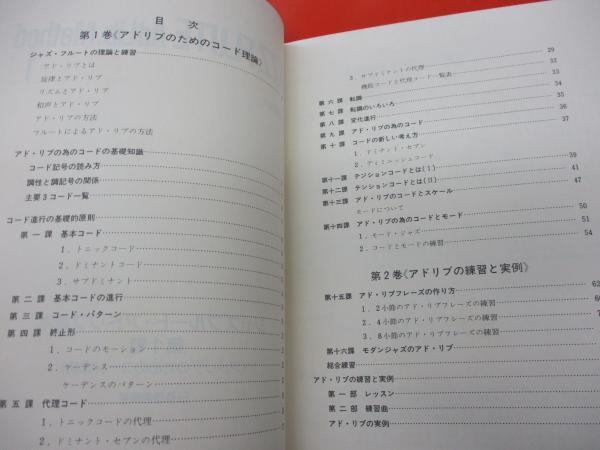 目 次
第1巻《アドリブのためのコード理論》
ジャズ・フルートの理論と練習
アド・リブとは
旋律とアド・リブ
リズムとアド・リブ
和声とアド・リブ
アド・リブの方法
フルートによるアド・リブの方法
アド・リブの為のコードの基礎知識
コード記号の読み方
調性と調記号の関係
主要3コード一覧
コード進行の基礎的原則
第一課 基本コード
1．トニックコード
2．ドミナントコード
3．サブドミナント
第二課 基本コードの進行
第三課 コード・パターン
第四課 終止形
1．コードのモーション
2．ケーデンス
ケーデンスのパターン
第五課 代理コード
1．トニックコードの代理
2．ドミナント・セブンの代理
3．サブドミナントの代理 29
機能コードと代理コード一覧表 32
第六課 転調 33
第七課 転調のいろいろ 34
第八課 変化進行 35
第九課 アド・リブの為のコード 36
第十課 コードの新しい考え方 37
1．ドミナント・セブン
2．ディミニッシュコード
第十一課 テンションコードとは(I) 39
第十二課 テンションコードとは(II) 41
第十三課 アド・リブのコードとスケール 47
モードについて
第十四課 アド・リブの為のコードとモード 50
1．モード・ジャズ 51
2．コードとモードの練習 54
第2巻《アドリブの練習と実例》
第十五課 アド・リブフレーズの作り方 62
1．2小節のアド・リブフレーズの練習
2．4小節のアド・リブフレーズの練習
3．8小節のアド・リブフレーズの練習
第十六課 モダンジャズのアド・リブ
総合練習
アド・リブの練習と実例
第一部 レッスン
第二部 練習曲
アド・リブの実例